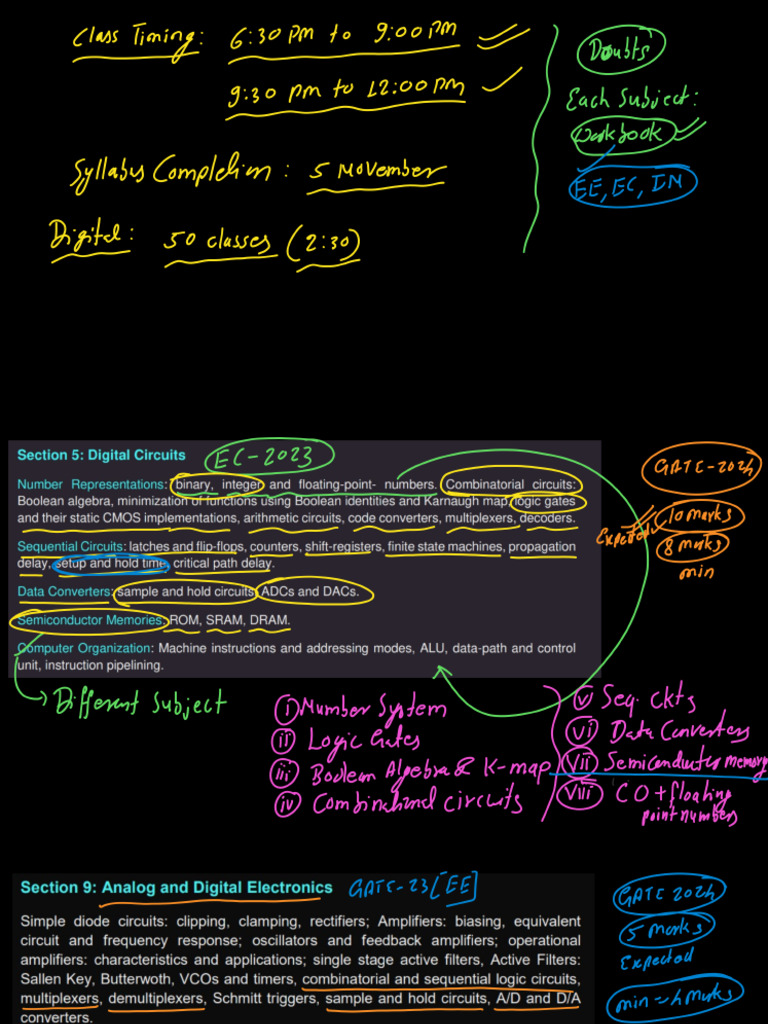 Class Timing: 6:30 PM to 9:00 PM
9:30 PM to 12:00 PM
Syllabus Completion: 5 November
Digital: 50 classes (2:30)
Doubts
Each Subject:
Workbook
EE, EC, IN
Section 5: Digital Circuits
EC-2023
Number Representations: binary, integer and floating-point- numbers. Combinatorial circuits:
Boolean algebra, minimization of functions using Boolean identities and Karnaugh map, logic gates
and their static CMOS implementations, arithmetic circuits, code converters, multiplexers, decoders.
Sequential Circuits: latches and flip-flops, counters, shift-registers, finite state machines, propagation
delay, setup and hold time, critical path delay.
Data Converters: sample and hold circuits, ADCs and DACs.
Semiconductor Memories: ROM, SRAM, DRAM.
Computer Organization: Machine instructions and addressing modes, ALU, data-path and control
unit, instruction pipelining.
GATE-2024
Expected 10 marks
8 marks
min
Different Subject
(i) Number System
(ii) Logic Gates
(iii) Boolean Algebra & K-map
(iv) Combinational Circuits
(v) Seq. Ckts
(vi) Data Converters
(vii) Semiconductor memory
(viii) CO + floating
point numbers
Section 9: Analog and Digital Electronics
GATE-23 [EE]
Simple diode circuits: clipping, clamping, rectifiers; Amplifiers: biasing, equivalent
circuit and frequency response; oscillators and feedback amplifiers; operational
amplifiers: characteristics and applications; single stage active filters, Active Filters:
Sallen Key, Butterwoth, VCOs and timers, combinatorial and sequential logic circuits,
multiplexers, demultiplexers, Schmitt triggers, sample and hold circuits, A/D and D/A
converters.
GATE 2024
5 marks
Expected
min = 4 marks